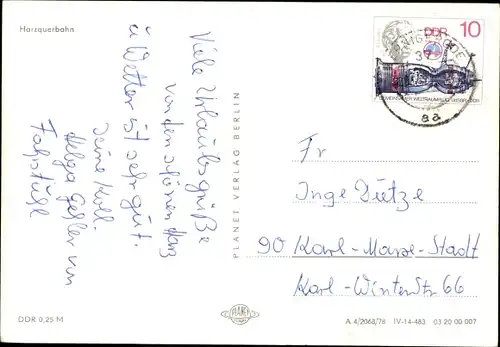 Harzquerbahn
Viele Urlaubsgrüße
von den schönen Harz
u Wetter ist sehr gut.
Deine Koll.
Helga
PLANET VERLAG BERLIN
DDR 10
GEMEINSAMER WELTRAUMFLUG UdSSR-DDR
aa
Fr
Inge Dietze
90 Karl-Marx-Stadt
Karl-Winter Str 66
DDR 0,25 M
PLANET
A 4/2068/78 IV-14-483 03 20 00 007